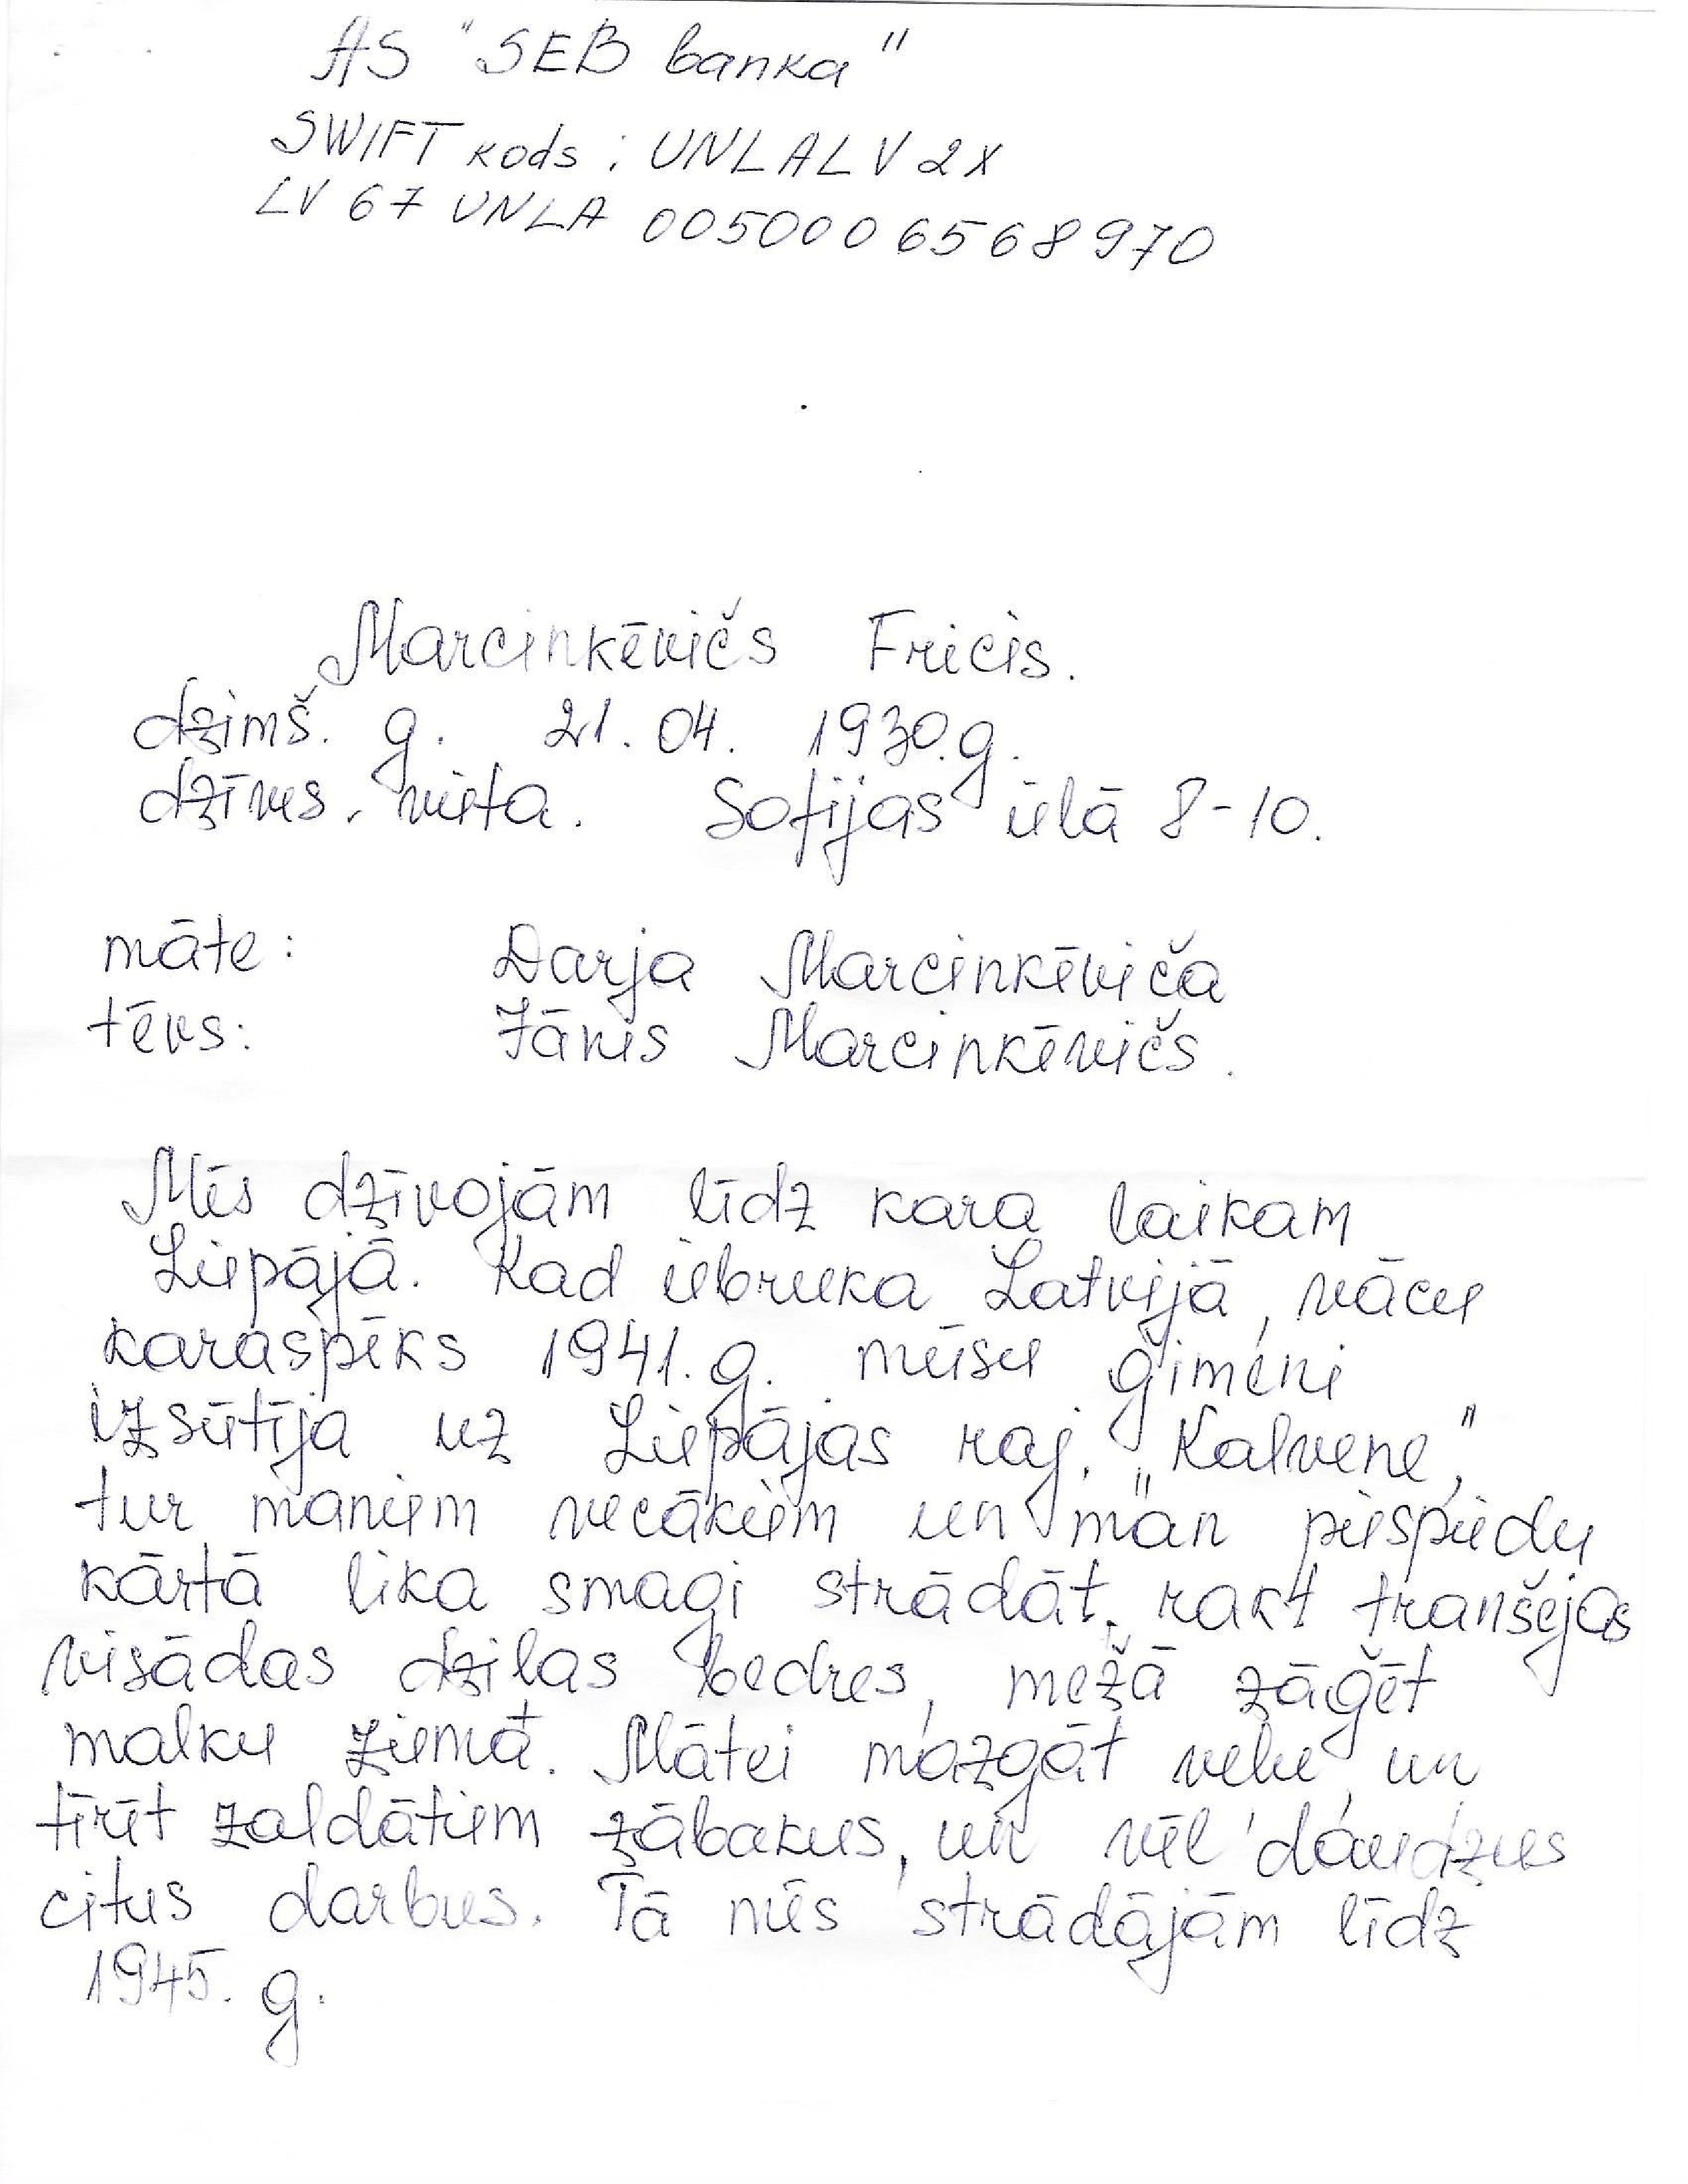 AS "SEB banka"
SWIFT kods : UNLALV2X
LV 67 UNLA 0050006568970
Marcinkēvičs Fricis.
dzimš. g. 21. 04. 1930.g.
dzīves. vieta. Sofijas ielā 8-10.
māte: Darja Marcinkēviča
tēvs: Jānis Marcinkēvičs.
Mēs dzīvojām līdz kara laikam
Liepājā. Kad iebruka Latvijā, vācu
karaspēks 1941. g. mūsu ģimeni
izsūtīja uz Liepājas raj. „Kalvene",
tur maniem vecākiem un man piespiedu
kārtā lika smagi strādāt. rakt tranšejas
visādas dziļas bedres, mežā zāģēt
malku ziemā. Mātei mazgāt veļu, un
tīrīt zaldātiem zābakus, un vēl daudzus
citus darbus. Tā mēs strādājām līdz
1945. g.